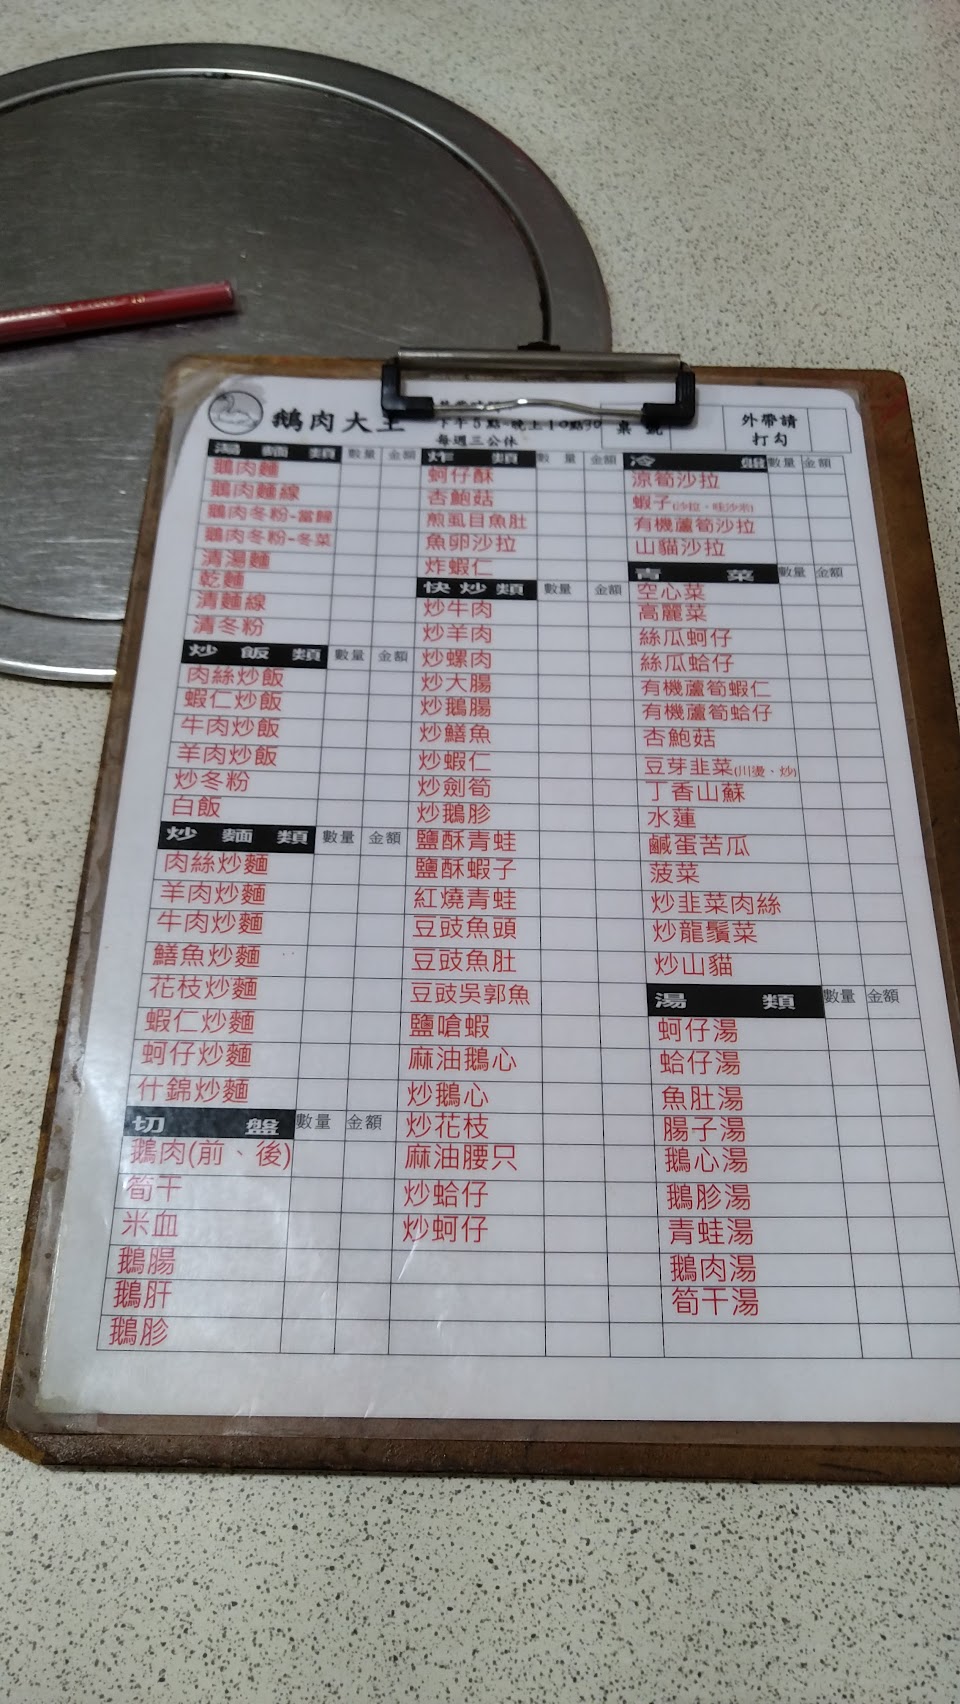 鵝肉大王
下午5點-晚上10點30
每週三公休
桌號
外帶請
打勾
湯麵類 數量 金額
鵝肉麵
鵝肉麵線
鵝肉冬粉-當歸
鵝肉冬粉-冬菜
清湯麵
乾麵
清麵線
清冬粉
炒飯類 數量 金額
肉絲炒飯
蝦仁炒飯
牛肉炒飯
羊肉炒飯
炒冬粉
白飯
炒麵類 數量 金額
肉絲炒麵
羊肉炒麵
牛肉炒麵
鱔魚炒麵
花枝炒麵
蝦仁炒麵
蚵仔炒麵
什錦炒麵
切盤 數量 金額
鵝肉(前、後)
筍干
米血
鵝腸
鵝肝
鵝胗
炸類 數量 金額
蚵仔酥
杏鮑菇
煎虱目魚肚
魚卵沙拉
炸蝦仁
快炒類 數量 金額
炒牛肉
炒羊肉
炒螺肉
炒大腸
炒鵝腸
炒鱔魚
炒蝦仁
炒劍筍
炒鵝胗
鹽酥青蛙
鹽酥蝦子
紅燒青蛙
豆豉魚頭
豆豉魚肚
豆豉吳郭魚
鹽嗆蝦
麻油鵝心
炒鵝心
炒花枝
麻油腰只
炒蛤仔
炒蚵仔
冷盤 數量 金額
涼筍沙拉
蝦子(沙拉、哇沙米)
有機蘆筍沙拉
山貓沙拉
青菜 數量 金額
空心菜
高麗菜
絲瓜蚵仔
絲瓜蛤仔
有機蘆筍蝦仁
有機蘆筍蛤仔
杏鮑菇
豆芽韭菜(川燙、炒)
丁香山蘇
水蓮
鹹蛋苦瓜
菠菜
炒韭菜肉絲
炒龍鬚菜
炒山貓
湯類 數量 金額
蚵仔湯
蛤仔湯
魚肚湯
腸子湯
鵝心湯
鵝胗湯
青蛙湯
鵝肉湯
筍干湯